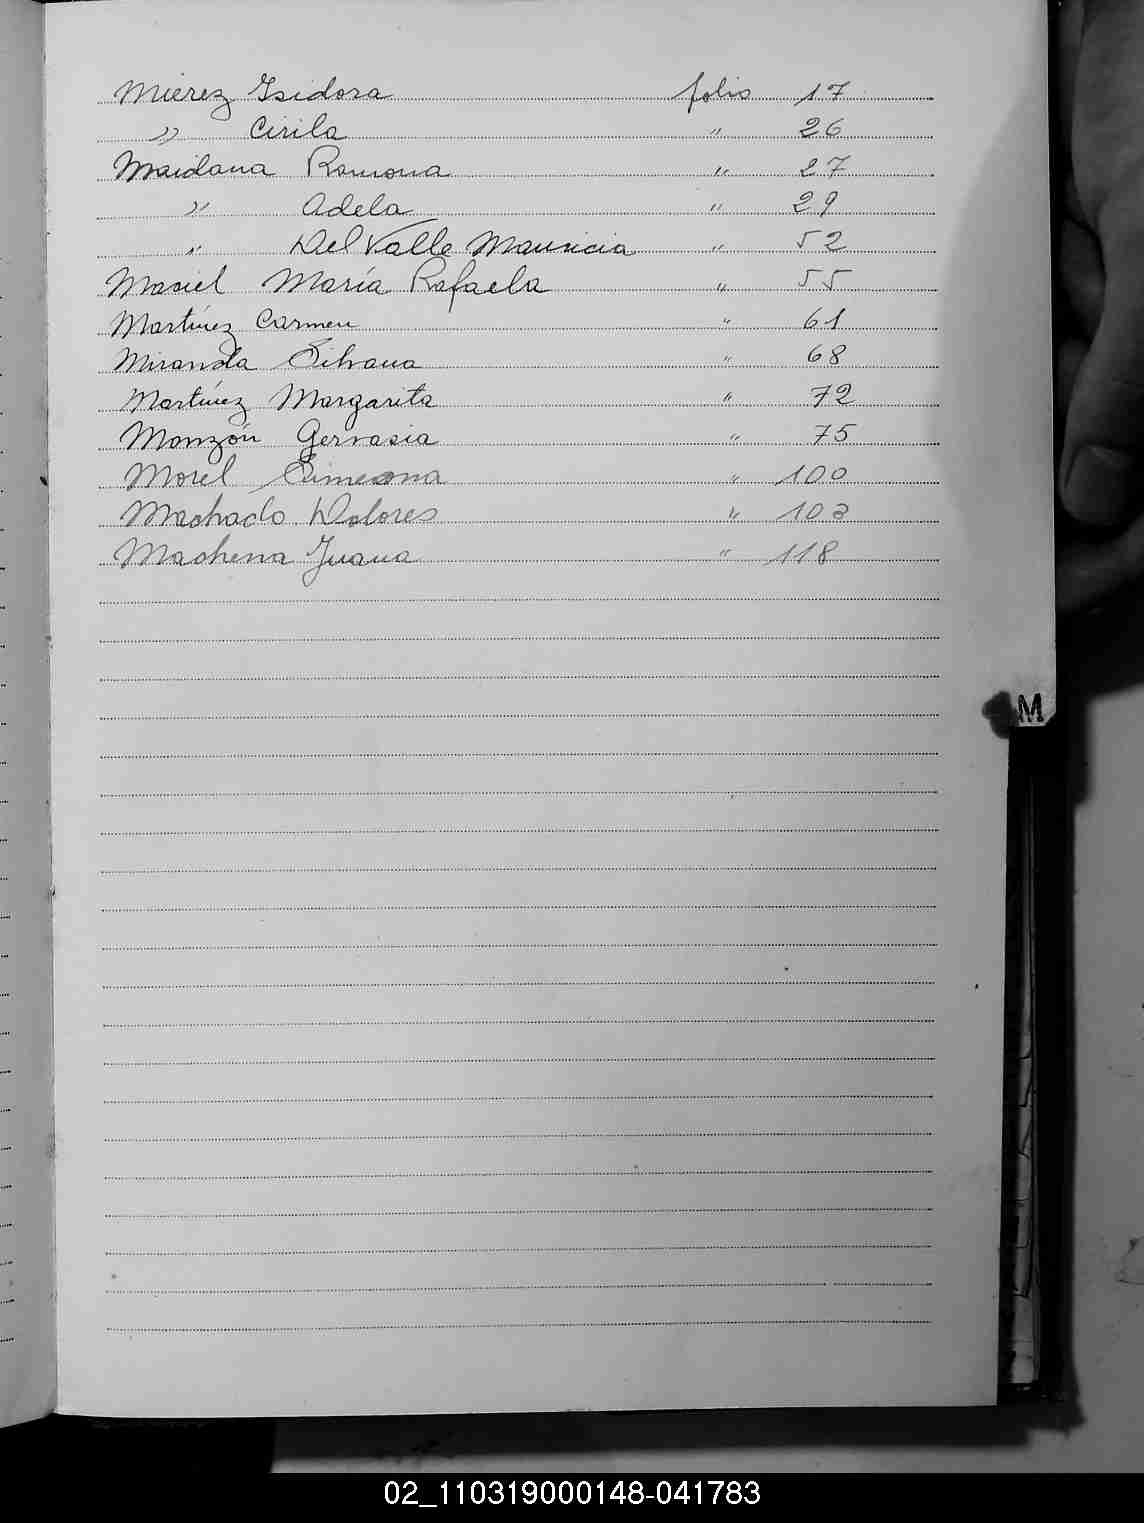 Mierez Isidora folio 17
" Cirila " 26
Maidana Ramona " 27
" Adela " 29
" Del Valle Mauricia " 52
Maciel María Rafaela " 55
Martínez Carmen " 61
Miranda Silvana " 68
Martínez Margarita " 72
Monzón Gervasia " 75
Morel Simeona " 100
Machado Dolores " 103
Machena Juana " 118
M
02_110319000148-041783